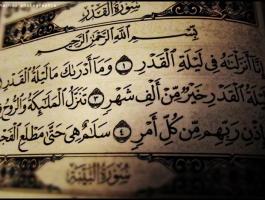 سُورَةُ القَدْرِ
بِسْمِ اللَّهِ الرَّحْمَٰنِ الرَّحِيمِ
إِنَّا أَنزَلْنَاهُ فِي لَيْلَةِ الْقَدْرِ ١ وَمَا أَدْرَاكَ مَا لَيْلَةُ الْقَدْرِ
لَيْلَةُ الْقَدْرِ خَيْرٌ مِّنْ أَلْفِ شَهْرٍ ٣ تَنَزَّلُ الْمَلَائِكَةُ وَالرُّوحُ
إِذْنِ رَبِّهِم مِّن كُلِّ أَمْرٍ ٤ سَلَامٌ هِيَ حَتَّىٰ مَطْلَعِ الْفَجْ
سُورَةُ البَيِّنَةِ